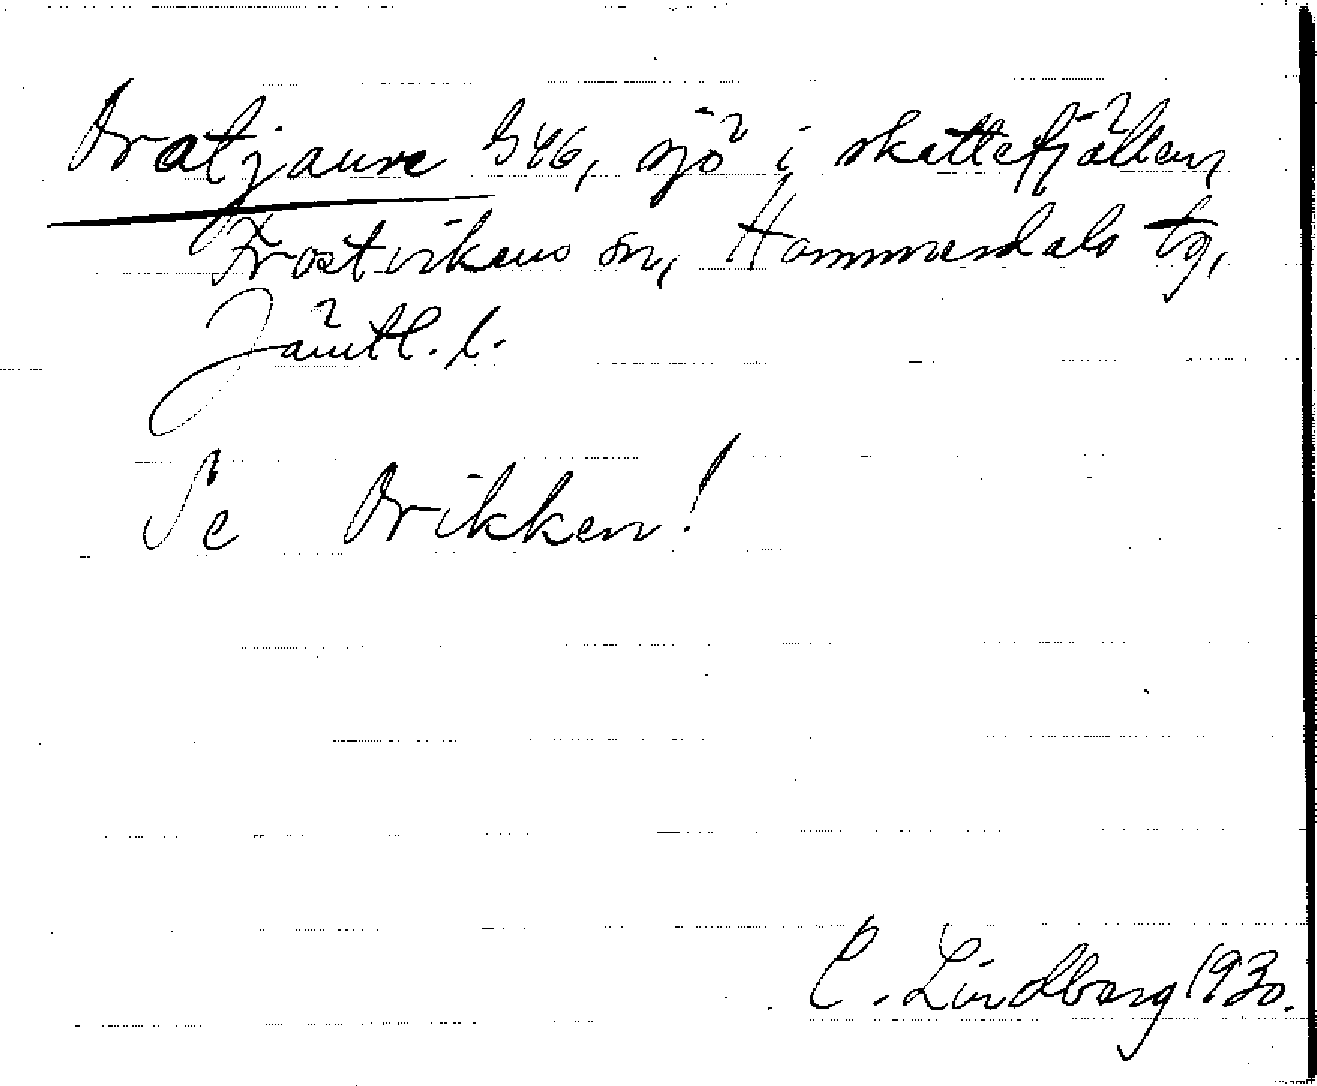 Oratjaure 546, sjö i skattefjällen,
Frostvikens sn, Hammerdals tg,
Jämtl. l.
Se Orikken!
C. Lindberg 1930.